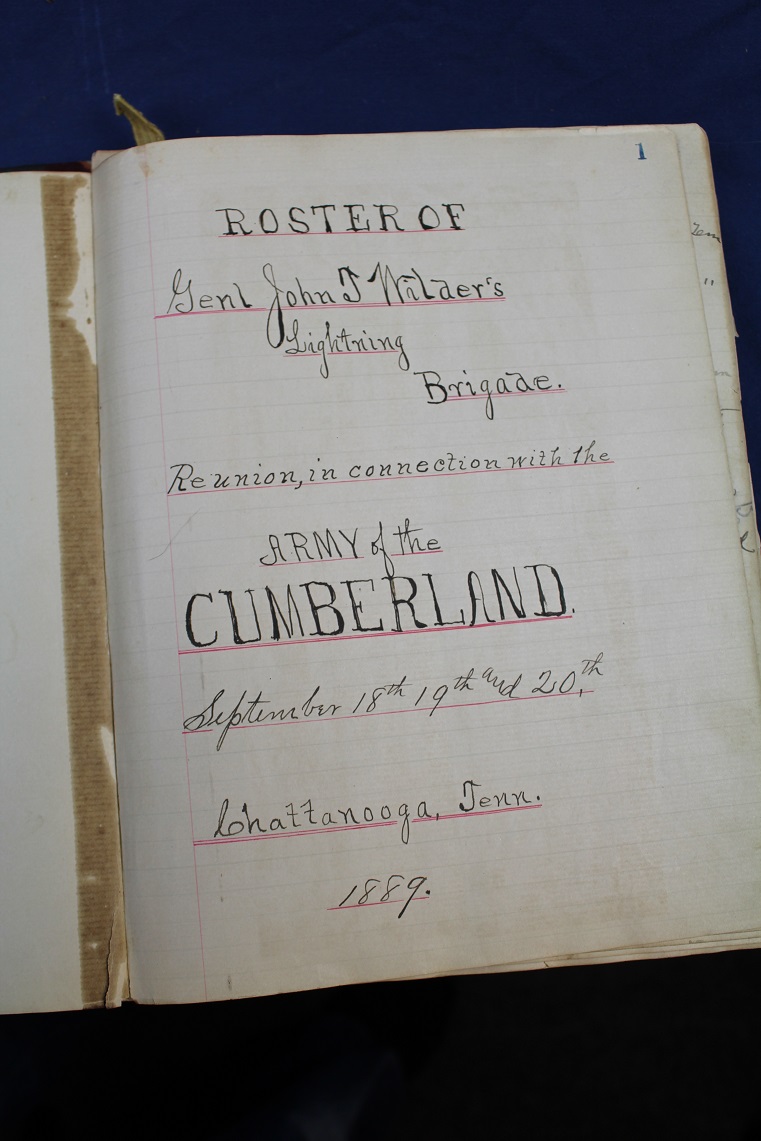 1
ROSTER OF
Genl John T Wilder's
Lightning
Brigade.
Reunion, in connection with the
ARMY of the
CUMBERLAND.
September 18th 19th and 20,th
Chattanooga, Tenn.
1889.
Tenn
"